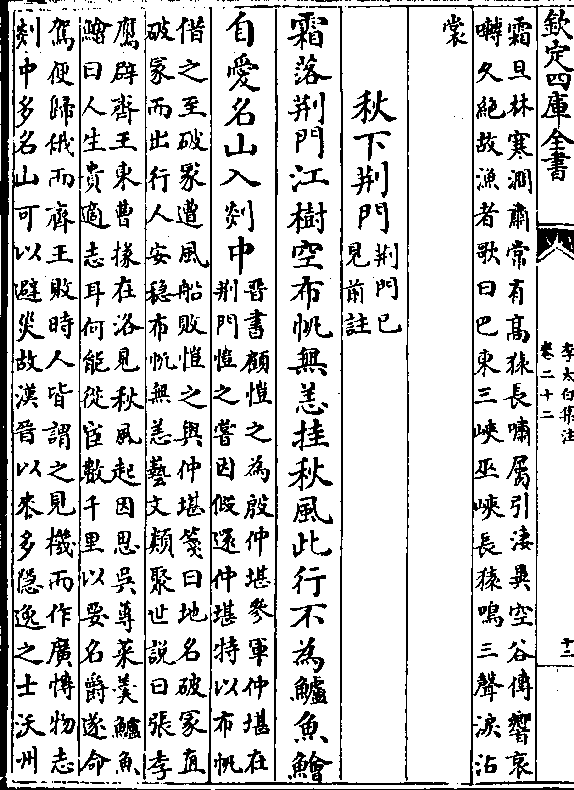 欽定四庫全書
李太白集注
卷二十二
十三
霜旦林寒澗肅常有高猿長嘯屬引淒異空谷傳響哀
囀久絕故漁者歌曰巴東三峽巫峽長猿鳴三聲淚沾
裳
秋下荆門
荆門已
見前註
霜落荆門江樹空布帆無恙挂秋風此行不為鱸魚鱠
自愛名山入剡中
晉書顧愷之為殷仲堪參軍仲堪在
荆門愷之嘗因假還仲堪特以布帆
借之至破冢遭風船敗愷之與仲堪箋曰地名破冢直
破冢而出行人安穩布帆無恙藝文類聚世說曰張季
鷹辟齊王東曹掾在洛見秋風起因思吳尊菜羹鱸魚
鱠曰人生貴適志耳何能從宦數千里以要名爵遂命
駕便歸俄而齊王敗時人皆謂之見機而作廣博物志
剡中多名山可以避災故漢晉以來多隱逸之士沃州